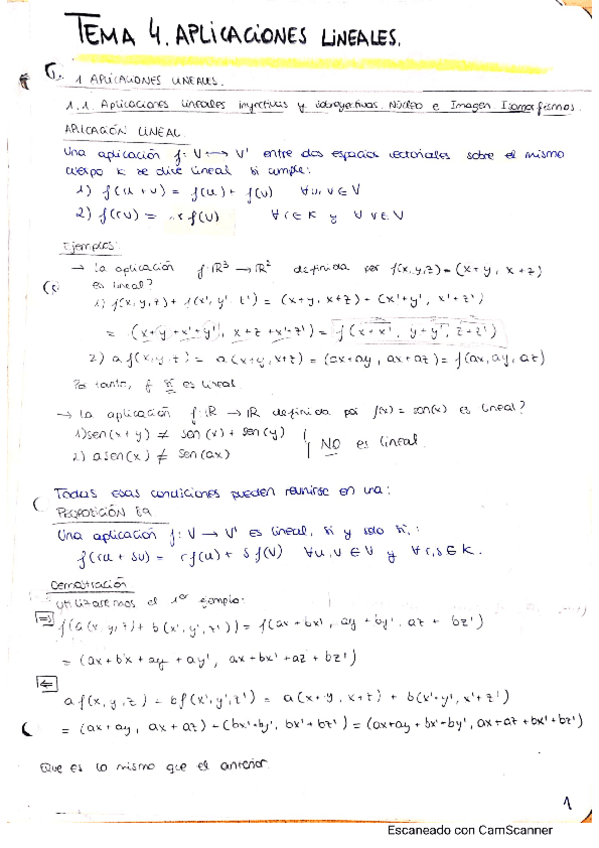 TEMA 4. APLICACIONES LINEALES.
1 APLICACIONES LINEALES.
1.1. Aplicaciones lineales inyectivas y sobreyectivas. Núcleo e Imagen. Isomorfismos.
APLICACIÓN LINEAL
Una aplicación f: V → V' entre dos espacios vectoriales sobre el mismo
cuerpo K se dice lineal si cumple:
1) f(u + v) = f(u) + f(v) ∀u, v ∈ V
2) f(rv) = r f(v) ∀ r ∈ K y ∀ v ∈ V
Ejemplos:
→ la aplicación f: ℝ³ → ℝ² definida por f(x,y,z) = (x+y, x+z)
es lineal?
1) f(x,y,z) + f(x',y',z') = (x+y, x+z) + (x'+y', x'+z')
= (x+y+x'+y', x+z+x'+z') = f(x+x', y+y', z+z')
2) a f(x,y,z) = a(x+y, x+z) = (ax+ay, ax+az) = f(ax, ay, az)
Por tanto, f sí es lineal.
→ La aplicación f: ℝ → ℝ definida por f(x) = sen(x) es lineal?
1) sen(x+y) ≠ sen(x) + sen(y)
2) a sen(x) ≠ sen(ax)
NO es lineal.
Todas esas condiciones pueden reunirse en una:
PROPOSICIÓN
Una aplicación f: V → V' es lineal, si y solo si,:
f(ru + sv) = r f(u) + s f(v) ∀u, v ∈ V y ∀ r, s ∈ K.
Demostración
Utilizaremos el 1er ejemplo:
⇒ f(a(x,y,z) + b(x',y',z')) = f(ax + bx', ay + by', az + bz')
= (ax + bx' + ay + ay', ax + bx' + az + bz')
⇐
a f(x,y,z) + b f(x',y',z') = a(x+y, x+z) + b(x'+y', x'+z')
= (ax+ay, ax+az) + (bx'+by', bx'+bz') = (ax+ay+bx'+by', ax+az+bx'+bz')
Que es lo mismo que el anterior.
1
Escaneado con CamScanner